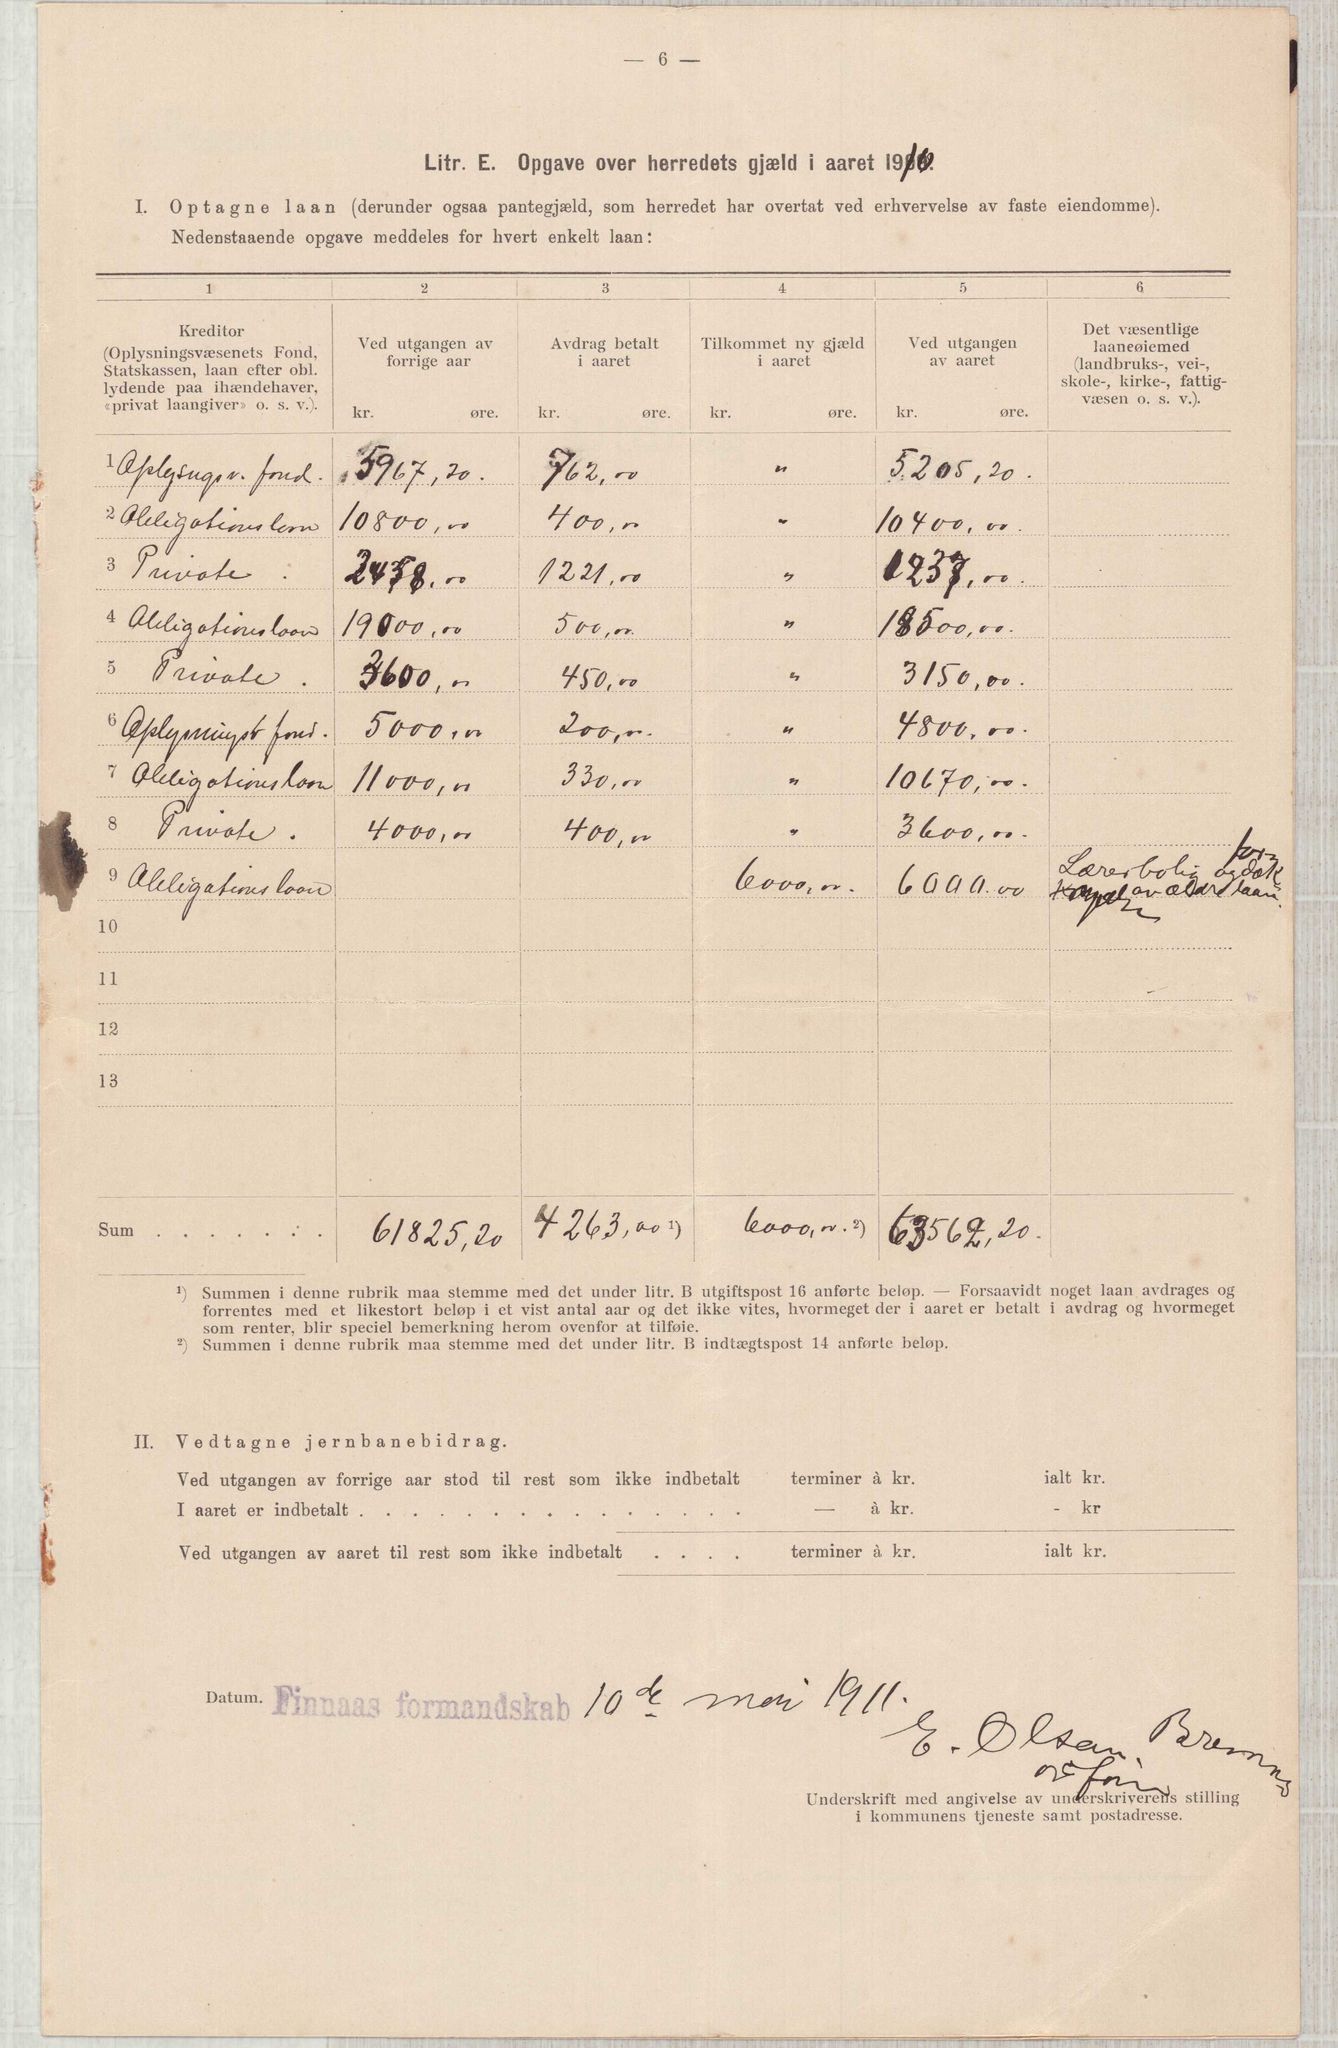 — 6 —
Litr. E. Opgave over herredets gjæld i aaret 1910.
I. Optagne laan (derunder ogsaa pantegjæld, som herredet har overtat ved erhvervelse av faste eiendomme).
Nedenstaaende opgave meddeles for hvert enkelt laan:
1 2 3 4 5 6
Kreditor
(Oplysningsvæsenets Fond,
Statskassen, laan efter obl.
lydende paa ihændehaver,
«privat laangiver» o. s. v.).
Ved utgangen av
forrige aar
kr. øre.
Avdrag betalt
i aaret
kr. øre.
Tilkommet ny gjæld
i aaret
kr. øre.
Ved utgangen
av aaret
kr. øre.
Det væsentlige
laaneøiemed
(landbruks-, vei-,
skole-, kirke-, fattig-
væsen o. s. v.).
1 Oplysngsv. fond. 5967,20. 762,00 " 5205,20.
2 Obligationslaan 10800,00 400,00 " 10400,00.
3 Private. 2458,00 1221,00 " 1237,00.
4 Obligationslaan 19000,00 500,00. " 18500,00.
5 Private. 3600,00 450,00 " 3150,00.
6 Oplysningsv fond. 5000,00 200,00. " 4800,00.
7 Obligationslaan 11000,00 330,00 " 10670,00.
8 Private. 4000,00 400,00 " 3600,00.
9 Obligationslaan 6000,00. 6000.00 Lærerbolig og dæk
av ældre laan.
10
11
12
13
Sum . . . . . . . 61825,20 4263,00 1) 6000,00. 2) 63562,20.
1) Summen i denne rubrik maa stemme med det under litr. B utgiftspost 16 anførte beløp. — Forsaavidt noget laan avdrages og
forrentes med et likestort beløp i et vist antal aar og det ikke vites, hvormeget der i aaret er betalt i avdrag og hvormeget
som renter, blir speciel bemerkning herom ovenfor at tilføie.
2) Summen i denne rubrik maa stemme med det under litr. B indtægtspost 14 anførte beløp.
II. Vedtagne jernbanebidrag.
Ved utgangen av forrige aar stod til rest som ikke indbetalt terminer à kr. ialt kr.
I aaret er indbetalt . . . . . . . . . . . . . . . — à kr. - kr
Ved utgangen av aaret til rest som ikke indbetalt . . . . terminer à kr. ialt kr.
Datum. Finnaas formandskab 10de mai 1911.
E. Olsen. Bremnes
Underskrift med angivelse av underskriverens stilling
i kommunens tjeneste samt postadresse.